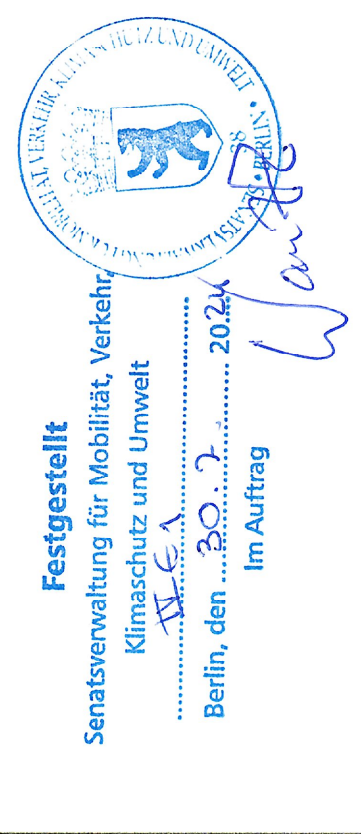 Festgestellt
Senatsverwaltung für Mobilität, Verkehr,
Klimaschutz und Umwelt
IV E 1
Berlin, den 30.7. 2024
Im Auftrag
SENATSVERWALTUNG FÜR MOBILITÄT, VERKEHR, KLIMASCHUTZ UND UMWELT • BERLIN •